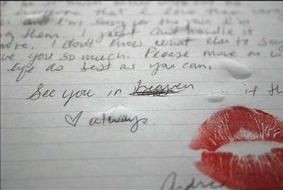 someone that I love then
and I'm sorry for the pain I'm
ing them. I just can't handle it
more. I don't know what else to
ve you so much. Please move on w
life as best as you can.
See you in heaven if th
♡ always
Andrea